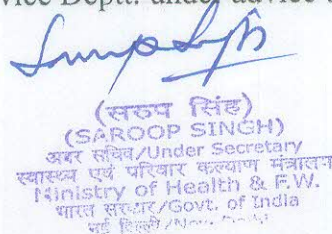 vice Deptt. under advice
(सरुप सिंह)
(SAROOP SINGH)
अवर सचिव/Under Secretary
स्वास्थ्य एवं परिवार कल्याण मंत्रालय
Ministry of Health & F.W.
भारत सरकार/Govt. of India
नई दिल्ली/New Delhi